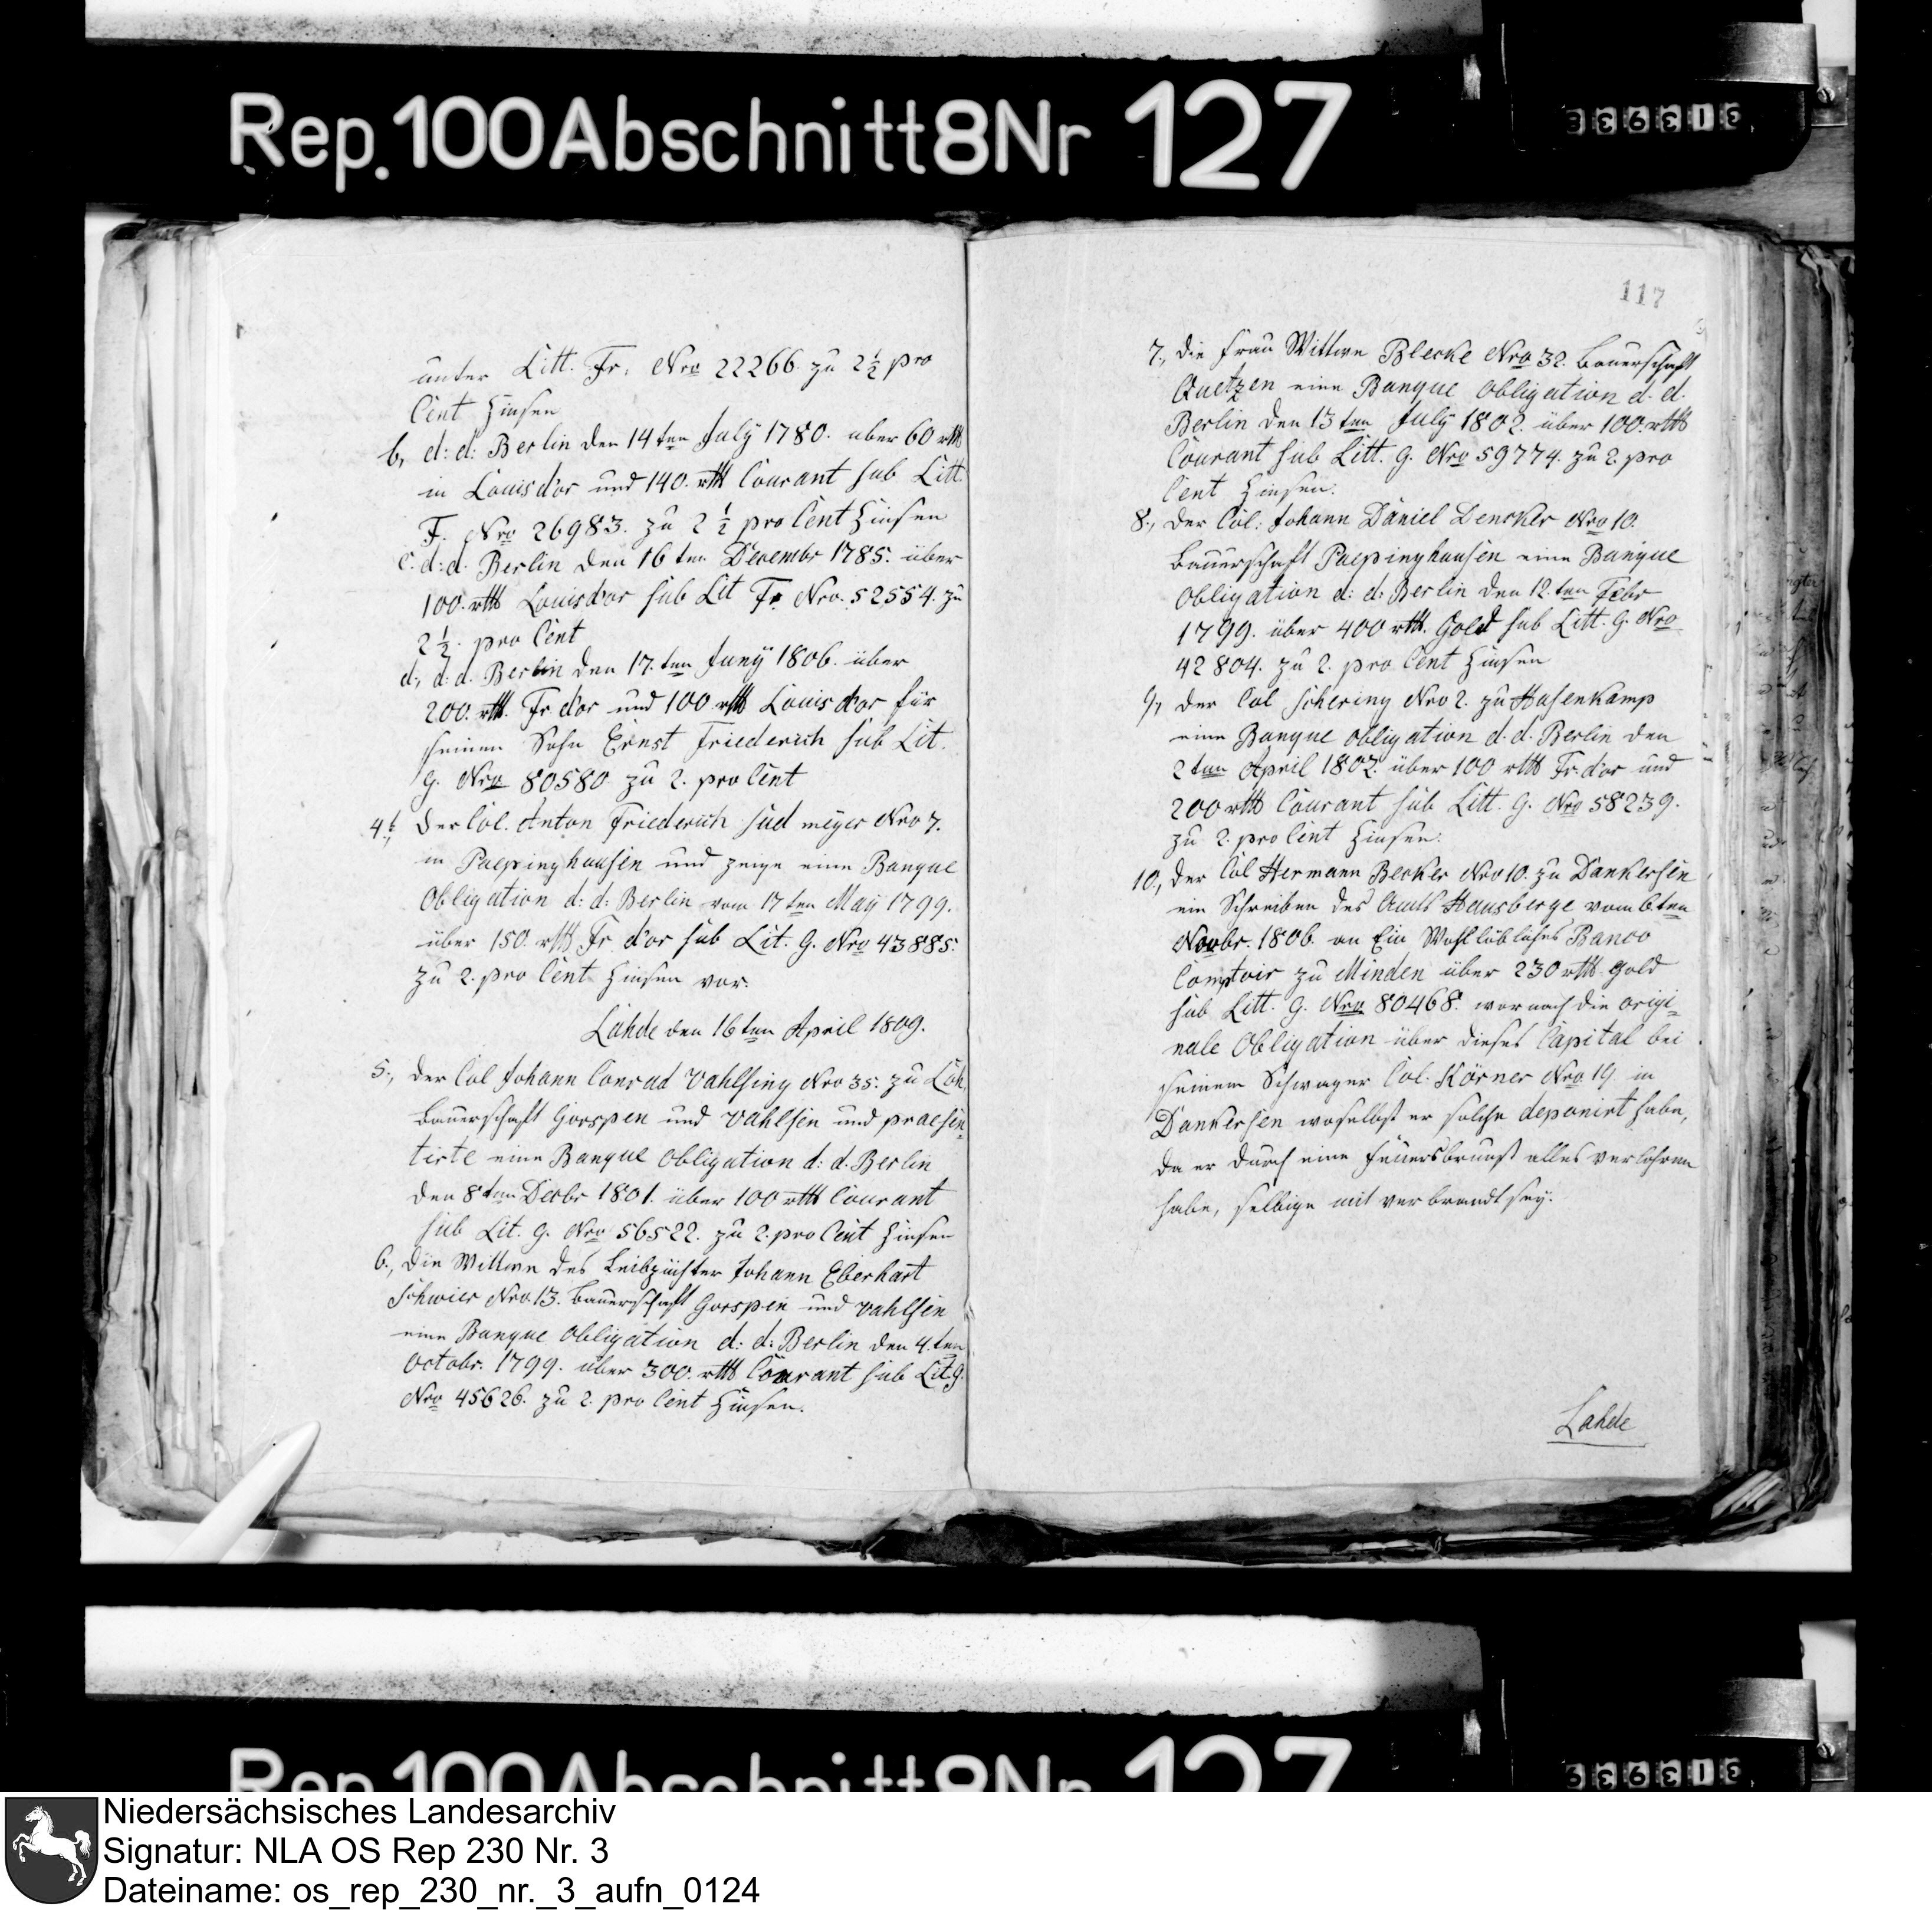 Rep. 100 Abschnitt 8 Nr 127
unter Litt. Fr. Nro 22266 zu 2½ pro
Cent Zinsen
b, d: d: Berlin den 14ten July 1780. uber 60 rtlr
in Louisd'or und 140. rtlr Courant sub Litt.
F. Nro 26983. zu 2½ pro Cent Zinsen
c. d: d. Berlin den 16ten Decembr 1785. über
100. rtlr Louisd'or sub Lit Fr Nro. 52554. zu
2½. pro Cent
d, d. d. Berlin den 17.ten Juny 1806. über
200. rtlr. Fr. d'or und 100 rtlr Louisd'or für
seinen Sohn Ernst Friederich sub Lit.
G. Nro 80580 zu 2. pro Cent
4, der Col. Anton Friederich Sudmeyer Nro 7.
in Paepinghausen und zeige eine Banque
Obligation d: d: Berlin vom 17ten May 1799.
über 150. rtlr Fr d'or sub Lit. G. Nro 43885.
zu 2. pro Cent Zinsen vor.
Lahde den 16ten April 1809.
5., der Col Johann Conrad Vahlsing Nro 35. zu Loh,
Bauerschaft Gorspen und Vahlsen und praesen-
tirte eine Banque Obligation d: d. Berlin
den 8ten Decbr 1801. über 100 rtlr Courant
sub Lit. G. Nro 56522. zu 2. pro Cent Zinsen
6., die Wittwe des Leibzüchter Johann Eberhart
Schwier Nro. 13. Bauerschaft Gorspen und Vahlsen
eine Banque Obligation d: d: Berlin den 4.ten
Octobr. 1799. über 300. rtlr Courant sub Lit. G.
Nro 45626. zu 2. pro Cent Zinsen.
117
7., die Frau Wittwe Blecke Nro 32. Bauerschaft
Quetzen eine Banque Obligation d. d.
Berlin den 13ten July 1802. über 100. rtlr
Courant sub Litt. G. Nro 59774. zu 2. pro
Cent Zinsen.
8., der Col: Johann Daniel Dencker Nro 10.
Bauerschaft Paepinghausen eine Banque
Obligation d: d: Berlin den 12.ten Febr
1799. über 400 rtlr. Gold sub Litt. G. Nro
42804. zu 2. pro Cent Zinsen
9, der Col Schering Nro 2. zu Hasenkamp
eine Banque Obligation d. d. Berlin den
2ten April 1802. über 100 rtlr Fr. d'or und
200 rtlr Courant sub Litt. G. Nro 58239.
zu 2. pro Cent Zinsen.
10., der Col Hermann Becker Nro 10. zu Dankersen
ein Schreiben des Amts Hausberge vom 6ten
Novbr. 1806. an Ein Wohllöbliches Banco
Comptoir zu Minden über 230 rtlr Gold
sub Litt. G. Nro 80468. wornach die origi-
nale Obligation über dieses Capital bei
seinem Schwager Col. Körner Nro 19 in
Dankersen woselbst er solche deponirt habe,
da er durch eine Feuersbrunst alles verlohren
habe, selbige mit verbrandt sey.
Lahde
Rep. 100 Abschnitt 8 Nr 127
Niedersächsisches Landesarchiv
Signatur: NLA OS Rep 230 Nr. 3
Dateiname: os_rep_230_nr._3_aufn_0124